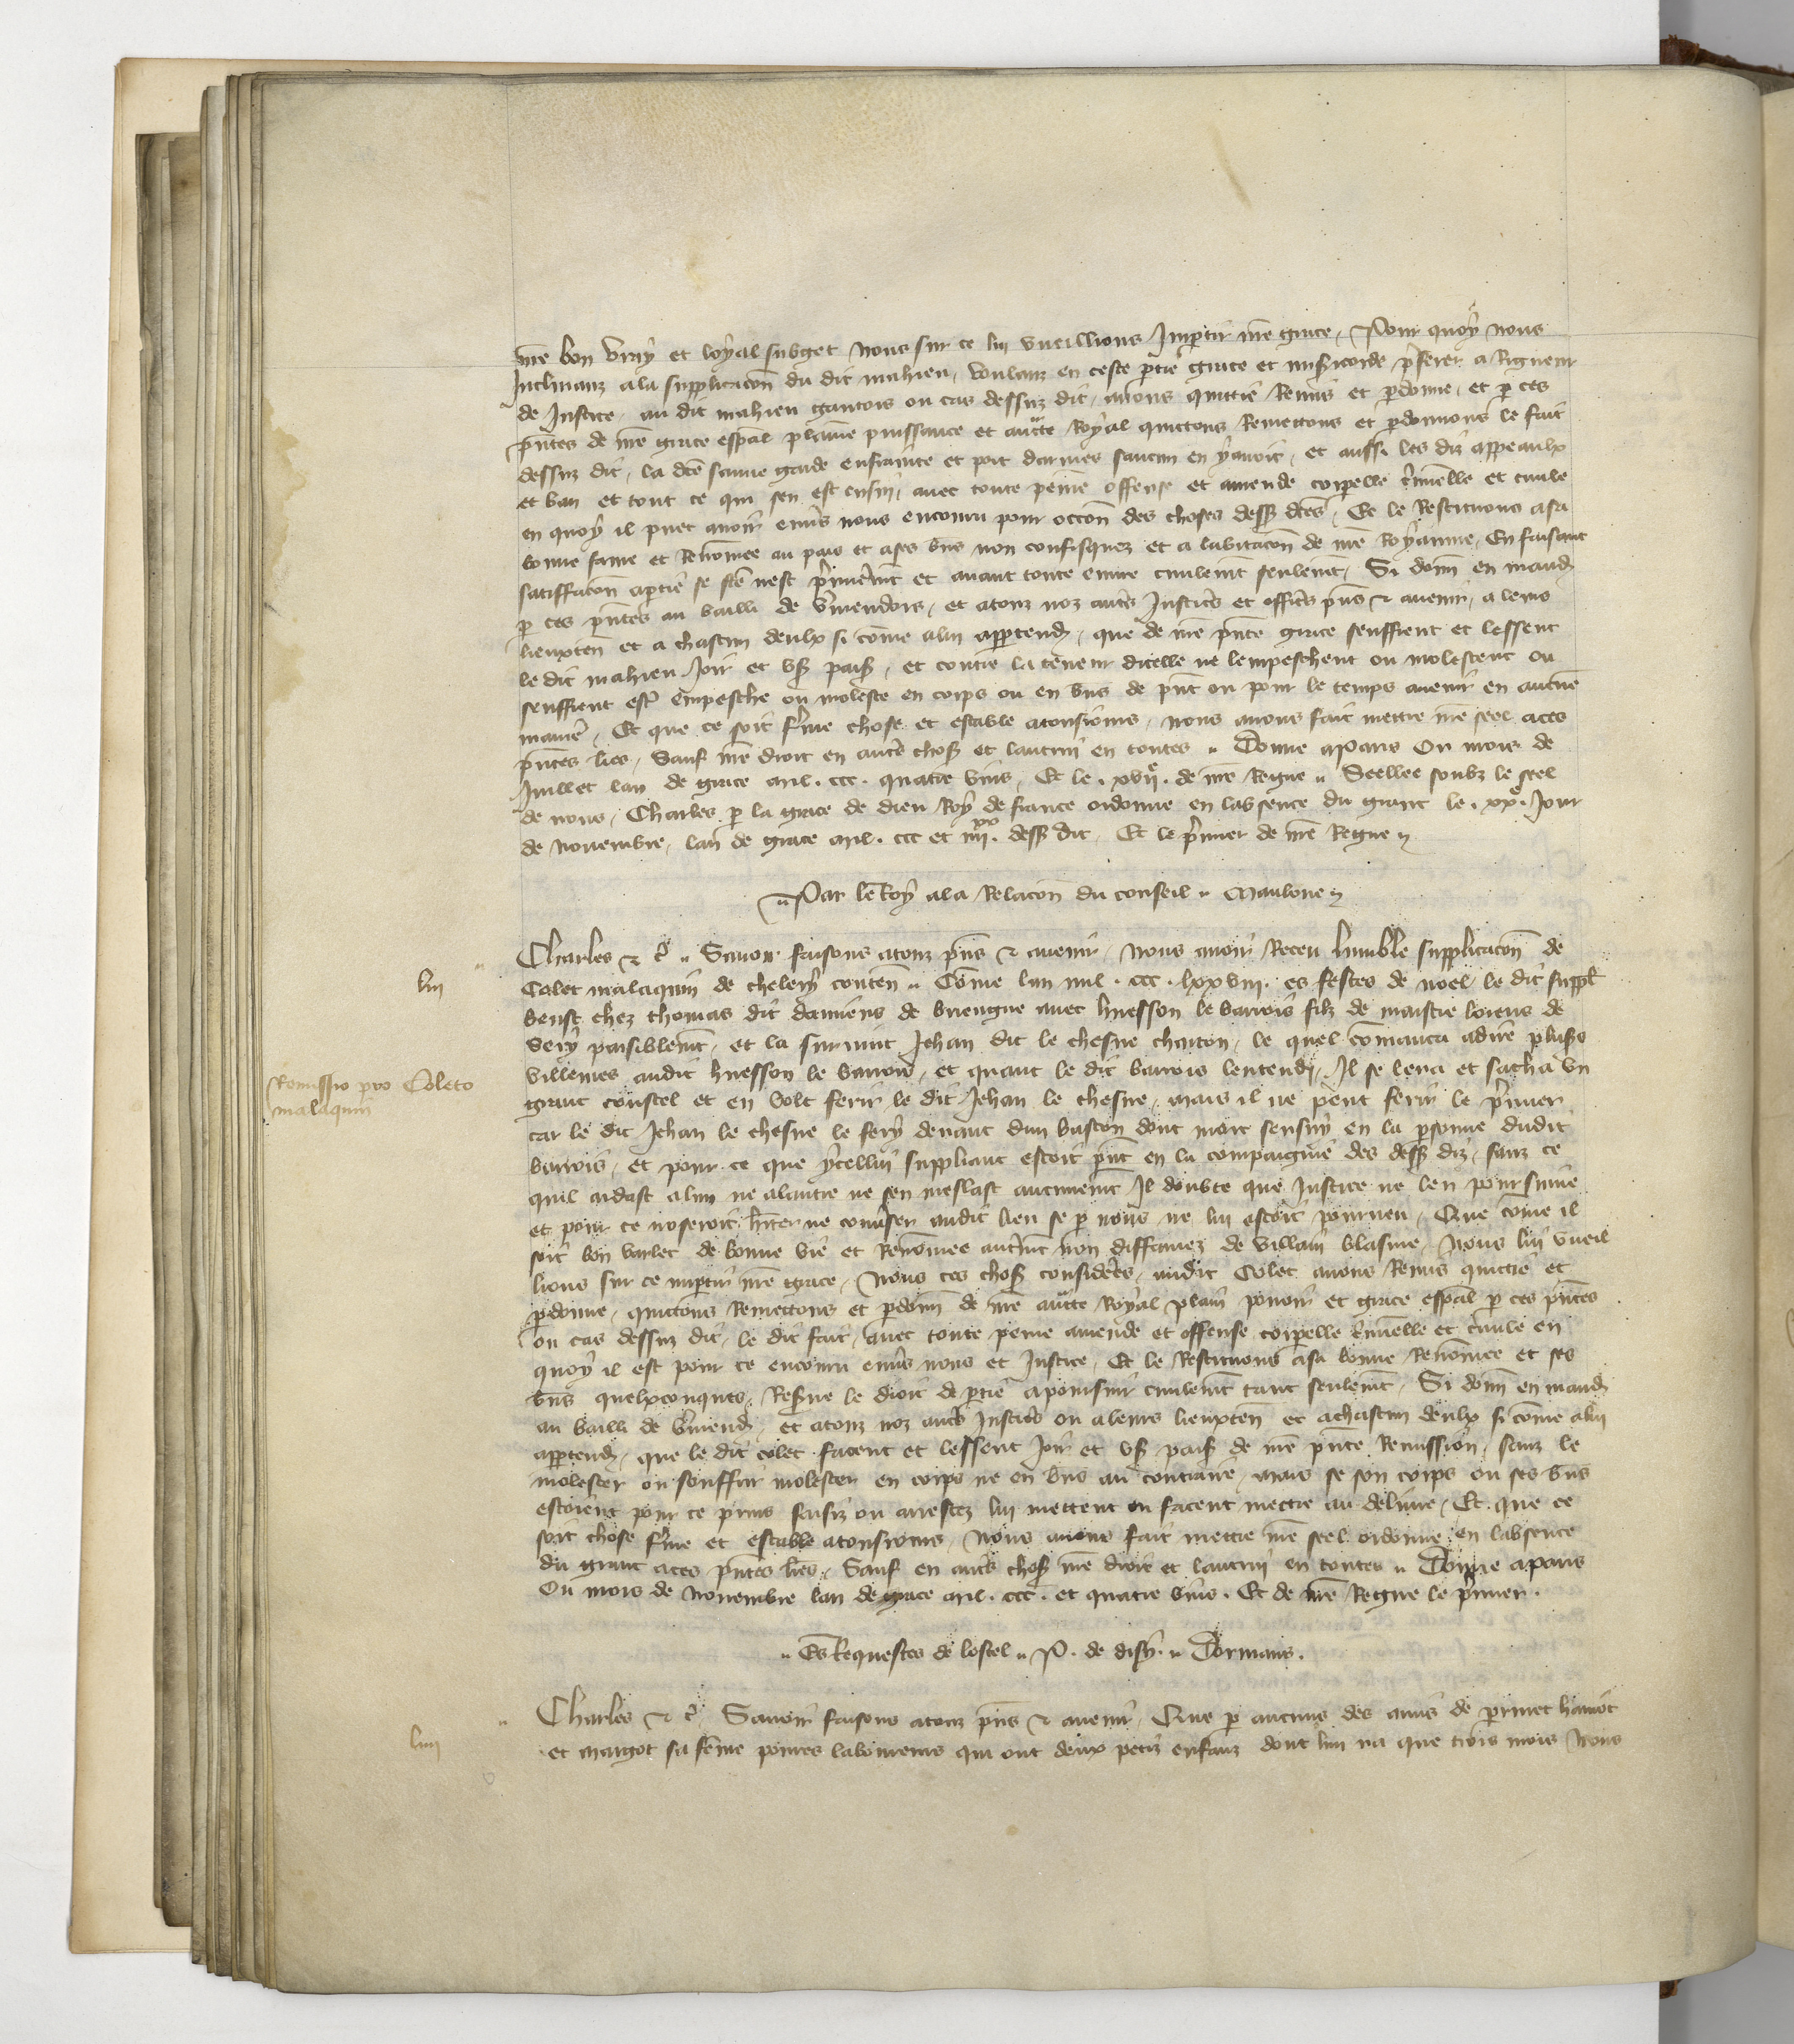 nre bon vray et loyal subget nous sur ce lui vueillions Impartir nre grace, Pour quoy nous
Inclinanz a la supplicacon du dit mahieu, voulanz en ceste partie grace et misericorde preferer a Rigueur
de Justice, au dit mahieu gantois ou cas dessuz dit, avons quittie Remis et pardonne, et par ces
pntes de nre grace espal plaine puissance et aucte Royal quictons Remettons et pardonnons le fait
dessuz dit, la dte sauve garde enfrainte et port darmes saucun en y avoit, et aussi les diz appeaulx
et ban et tout ce qui sen est ensui, avec toute peine offense et amende corporelle criminelle et civile
en quoy il puet avoir envers nous encouru pour occon des choses dessus dtes, Et le Restituons a sa
bonne fame et Renommee au pais et a ses bns non confisquez et a labitacon de nre Royaume, En faisant
satiffacon a partie se fte nest premierement et avant toute euvre civilement seulement, Si donn en mand
par ces pntes au bailli de vermendois, et a touz noz autres Justiciers et officiers pns & avenir, a leurs
lieuxten et a chascun deulx si come a lui appartend, que de nre pnte grace seuffrent et lessent
le dit mahieu Joir et user paisi, et contre la teneur dicelle ne lempeschent ou molestent ou
seuffrent estre empesche ou moleste en corps ou en bns de pnt ou pour le temps avenir en aucune
maniere, Et que ce soit ferme chose et estable a tousjours, nous avons fait mettre nre seel a ces
pntes lres, Sauf nre droit en autres choses et lautrui en toutes, Donne a Paris Ou mois de
Juillet lan de grace mil. ccc. quatre vins, Et le. xvii e. de nre Regne, Seellee soubz le seel
de nous, Charles par la grace de dieu Roy de france ordonne en labsence du grant le. xxe. Jour
de novembre, lan de grace mil. ccc et iiii xx. dessus dit, Et le premier de nre Regne
Par le Roy a la Relacon du conseil, Maulone
Charles & c. Savoir faisons a touz pns & avenir, Nous avoir Receu humble supplicacon de
lii
Colet malaquin de cheleri conten, Come lan mil. ccc. lxxviii. es festes de noel le dit suppl
beust chez thomas dit damiens de brengue avec huesson le barrois filz de maistre loreus de
Sery paisiblement, et la survint Jehan dit le chesne charton, le quel comanca a dire pluss
villenies audit huesson le barrois, et quant le dit barrois lentendi, Il se leva et sacha un
Remissio pro Coleto
malaquin
grant coustel et en volt ferir le dit Jehan le chesne, mais il ne peut ferir le premier
car le dit Jehan le chesne le fery devant dun baston dont mort sensuy en la personne dudit
barrois, et pour ce que ycellui suppliant estoit pnt en la compaignie des dessus diz, sanz ce
quil aidast a lun ne a lautre ne sen meslast aucunement Il doubte que Justice ne len poursuive
et pour ce noseroit hanter ne converser audit lieu se par nous ne lui estoit pourveu, Que come il
soit bon varlet de bonne vie et Renommee autrement non diffamez de villain blasme, Nous lui vueil
lions sur ce impartir nre grace, Nous ces choses considerees, audit Colet avons Remis quittie et
pardonne, quittons Remettons et pardonn de nre aucte Royal plain povoir et grace espal par ces pntes
ou cas dessuz dit, le dit fait, avec toute peine amende et offense corporelle criminelle et civile en
quoy il est pour ce encouru envers nous et Justice, Et le Restituons a sa bonne Renommee et ses
bns quelxconques, Reserve le droit de partie a poursuir civilement tant seulement, Si donn en mand
au bailli de vermend, et a touz noz autres Justiciers ou a leurs lieuxten et a chascun deulx si come a lui
appartend, que le dit Colet facent et lessent Joir et user paisi de nre pnte Remission, sanz le
molester ou souffrir molester en corps ne en bns au contraire, mais se son corps ou ses bns
estoient pour ce prins saisiz ou arrestez lui mettent ou facent mectre au delivre, Et que ce
soit chose ferme et estable a tousjours, Nous avons fait mettre nre seel ordonne en labsence
du grant a ces pntes lres, Sauf en autres choses nre droit et lautrui en toutes, Donne a Paris
Ou mois de Novembre lan de grace mil. ccc. et quatre vins. Et de nre Regne le premier.
Es Requestes de lostel, P. de disy., Dormans.
Charles & c. Savoir faisons a touz pns & avenir, Que par aucuns des amis de perinet hanot
liii
et margot sa feme povres laboureurs qui ont deux petiz enfanz dont lun na que trois mois Nous